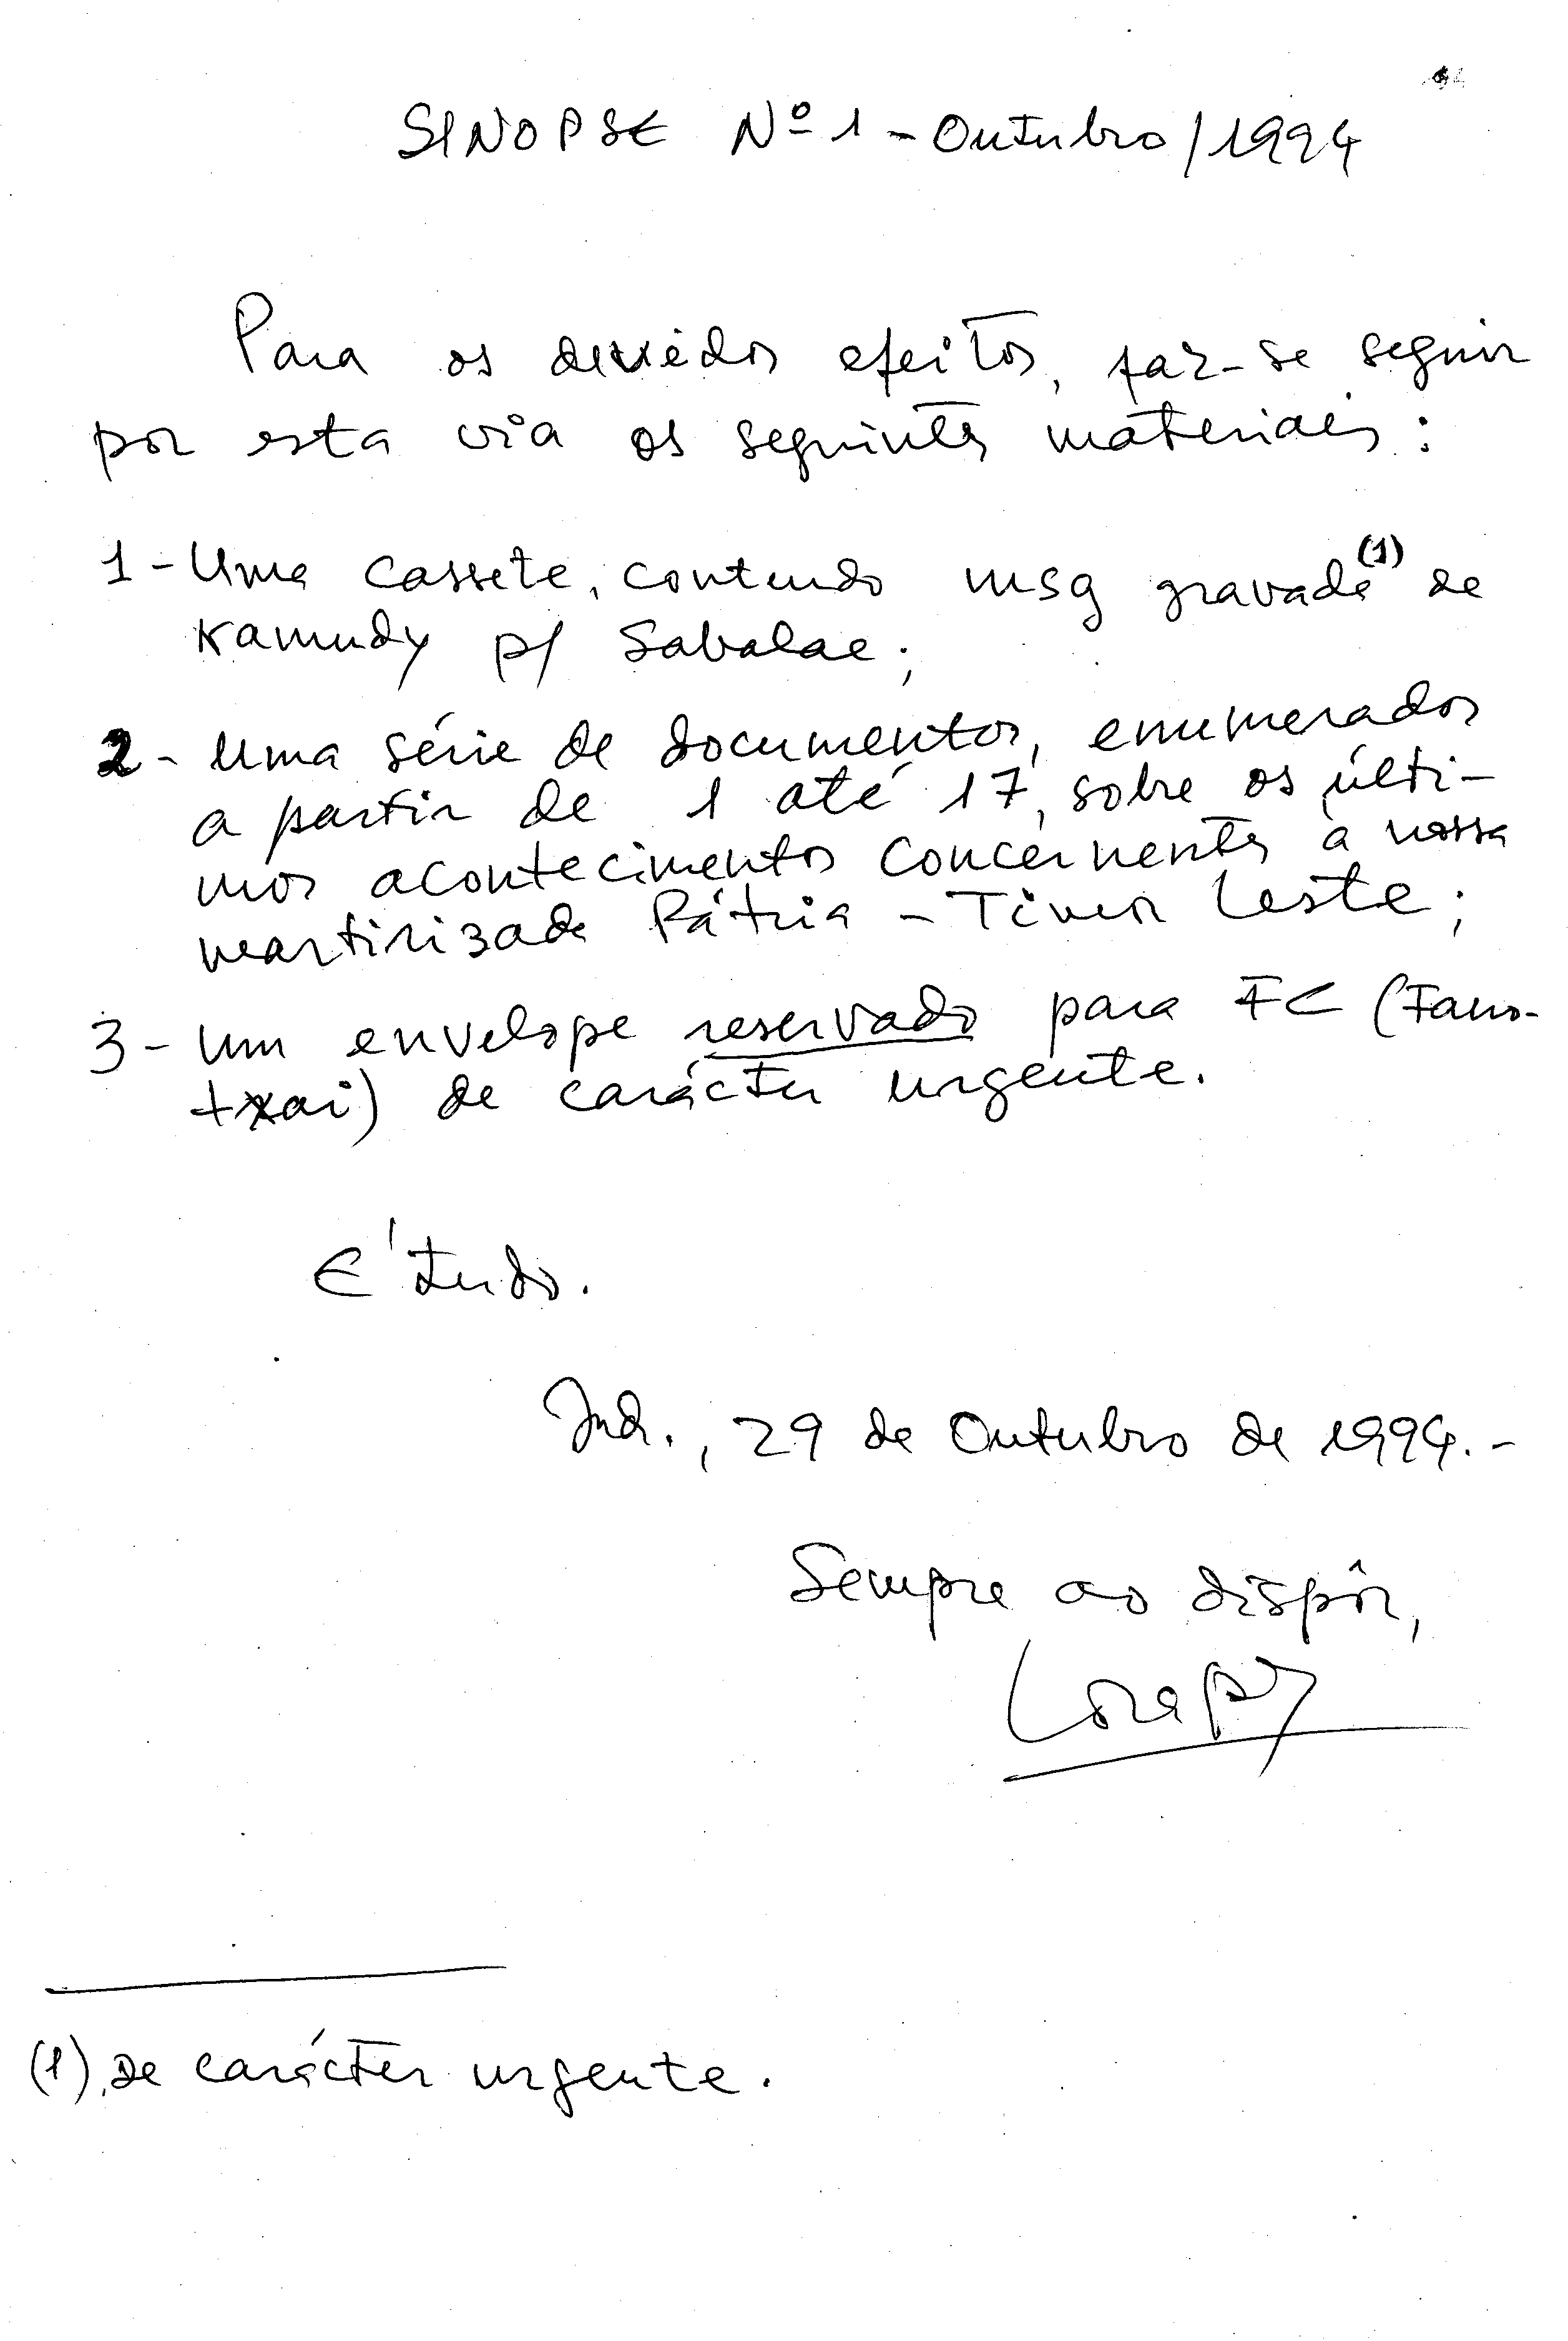 SINOPSE Nº 1 - Outubro/1994
Para os devidos efeitos, faz-se seguir
por esta via os seguintes materiais:
1 - Uma cassete, contendo msg gravada (1) de
Kamudy p/ Sabalae;
2 - Uma série de documentos, enumerados
a partir de 1 até 17, sobre os últi-
mos acontecimentos concernentes à nossa
martirizada Pátria - Timor Leste;
3 - Um envelope reservado para FC (Fano-
txai) de carácter urgente.
É tudo.
Ind., 29 de Outubro de 1994.-
Sempre ao dispôr,
(1) De carácter urgente.